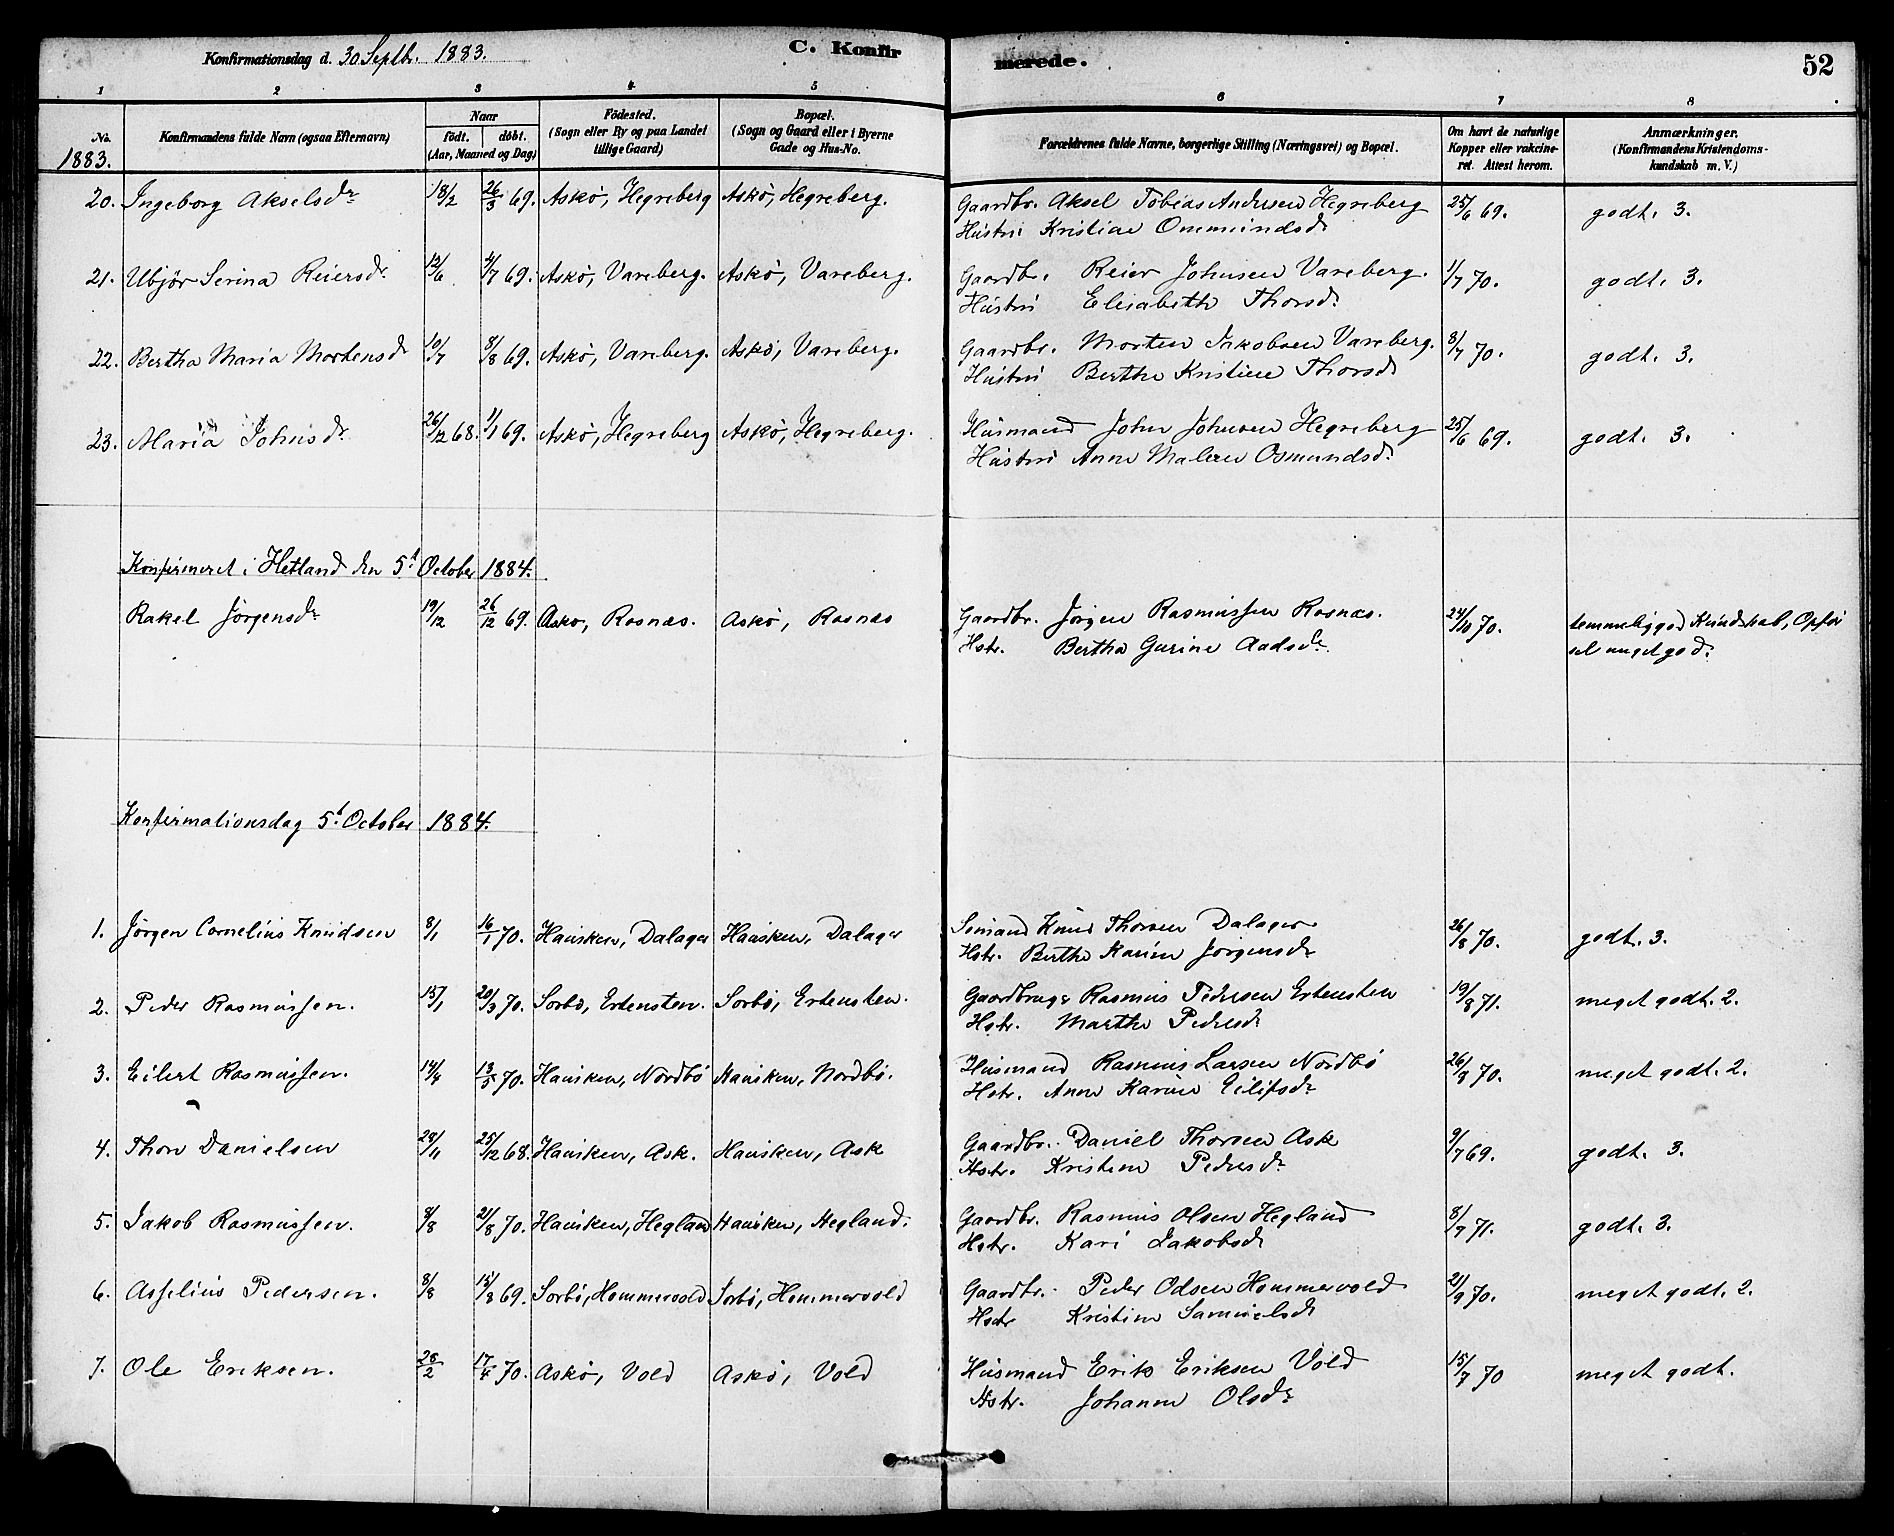 Konfirmationsdag d. 30 Septbr. 1883.
C. Konfirmerede.
52
1 2 3 4 5 6 7 8
No. Konfirmandens fulde Navn (ogsaa Efternavn) Naar født. døbt. (Aar, Maaned og Dag) Födested. (Sogn eller By og paa Landet tillige Gaard) Bopæl. (Sogn og Gaard eller i Byerne Gade og Hus-No. Forældrenes fulde Navne, borgerlige Stilling (Næringsvei) og Bopæl. Om havt de naturlige Kopper eller vakcineret. Attest herom. Anmærkninger. (Konfirmandens Kristendomskundskab m. V.)
1883.
20. Ingeborg Akselsdr 18/2 26/3 69. Askø, Hegreberg Askø, Hegreberg. Gaardbr. Aksel Tobias Andersen Hegreberg 25/6 69. godt. 3.
Hustru Kristiae Ommundsdr
21. Ubjør Serina Reiersdr. 12/6 4/7 69. Askø, Vareberg. Askø, Vareberg. Gaardbr. Reier Johnsen Vareberg. 1/7 70. godt. 3.
Hustru Elisabeth Thorsdr
22. Bertha Maria Mortensdr 10/7 8/8 69. Askø, Vareberg. Askø, Vareberg. Gaardbr. Morten Jakobsen Vareberg. 8/7 70. godt. 3.
Hustru Berthe Kristine Thorsdr
23. Maria Johnsdr 26/12 68. 1/1 69. Askø, Hegreberg Askø, Hegreberg. Husmand John Johnsen Hegreberg 25/6 69. godt. 3.
Hustru Anne Malene Osmundsdr
Konfirmeret i Hetland den 5t October 1884.
Rakel Jørgensdr 19/12 26/12 69. Askø, Rosnæs. Askø, Rosnæs Gaardbr. Jørgen Rasmussen Rosnæs. 24/10 70. temmelig god Kundskab, Opfør
Hstr. Bertha Gurine Aadsdr. sel meget god.
Konfirmationsdag 5t October 1884.
1. Jørgen Cornelius Knudsen 8/1 16/1 70. Hausken, Dalager Hausken, Dalager Sømand Knud Thorsen Dalager 26/8 70. godt. 3.
Hstr. Berthe Karine Jørgensdr
2. Peder Rasmussen. 15/1 20/3 70. Sørbø, Ertensten. Sørbø, Ertensten. Gaardbruger Rasmus Pedersen Ertensten 19/8 71. meget godt. 2.
Hstr. Marthe Pedersdr
3. Eilert Rasmussen. 14/4 13/5 70. Hausken, Nordbö Hausken, Nordbö. Husmand Rasmus Larsen Nordbö 26/8 70. meget godt. 2.
Hstr. Anne Karine Eilifsdr
4. Thore Danielsen 28/11 25/12 68. Hausken, Ask. Hausken, Ask Gaardbr. Daniel Thorsen Ask 9/7 69. godt. 3.
Hstr. Kristine Pedersdr
5. Jakob Rasmussen. 8/8 21/8 70. Hausken, Hegland Hausken, Hegland. Gaardbr. Rasmus Olsen Hegland 8/7 71. godt. 3.
Hstr. Kari Jakobsdr
6. Asselius Pedersen. 8/8 15/8 69. Sørbø, Hommervold Sørbø, Hommervold Gaardbr. Peder Odsen Hommervold 21/9 70. meget godt. 2.
Hstr Kristine Samuelsdr
7. Ole Eriksen. 28/2 17/4 70. Askø, Vold Askø, Vold Husmand Erik Eriksen Vold 15/7 70 meget godt.
Hstr. Johanne Olsdr